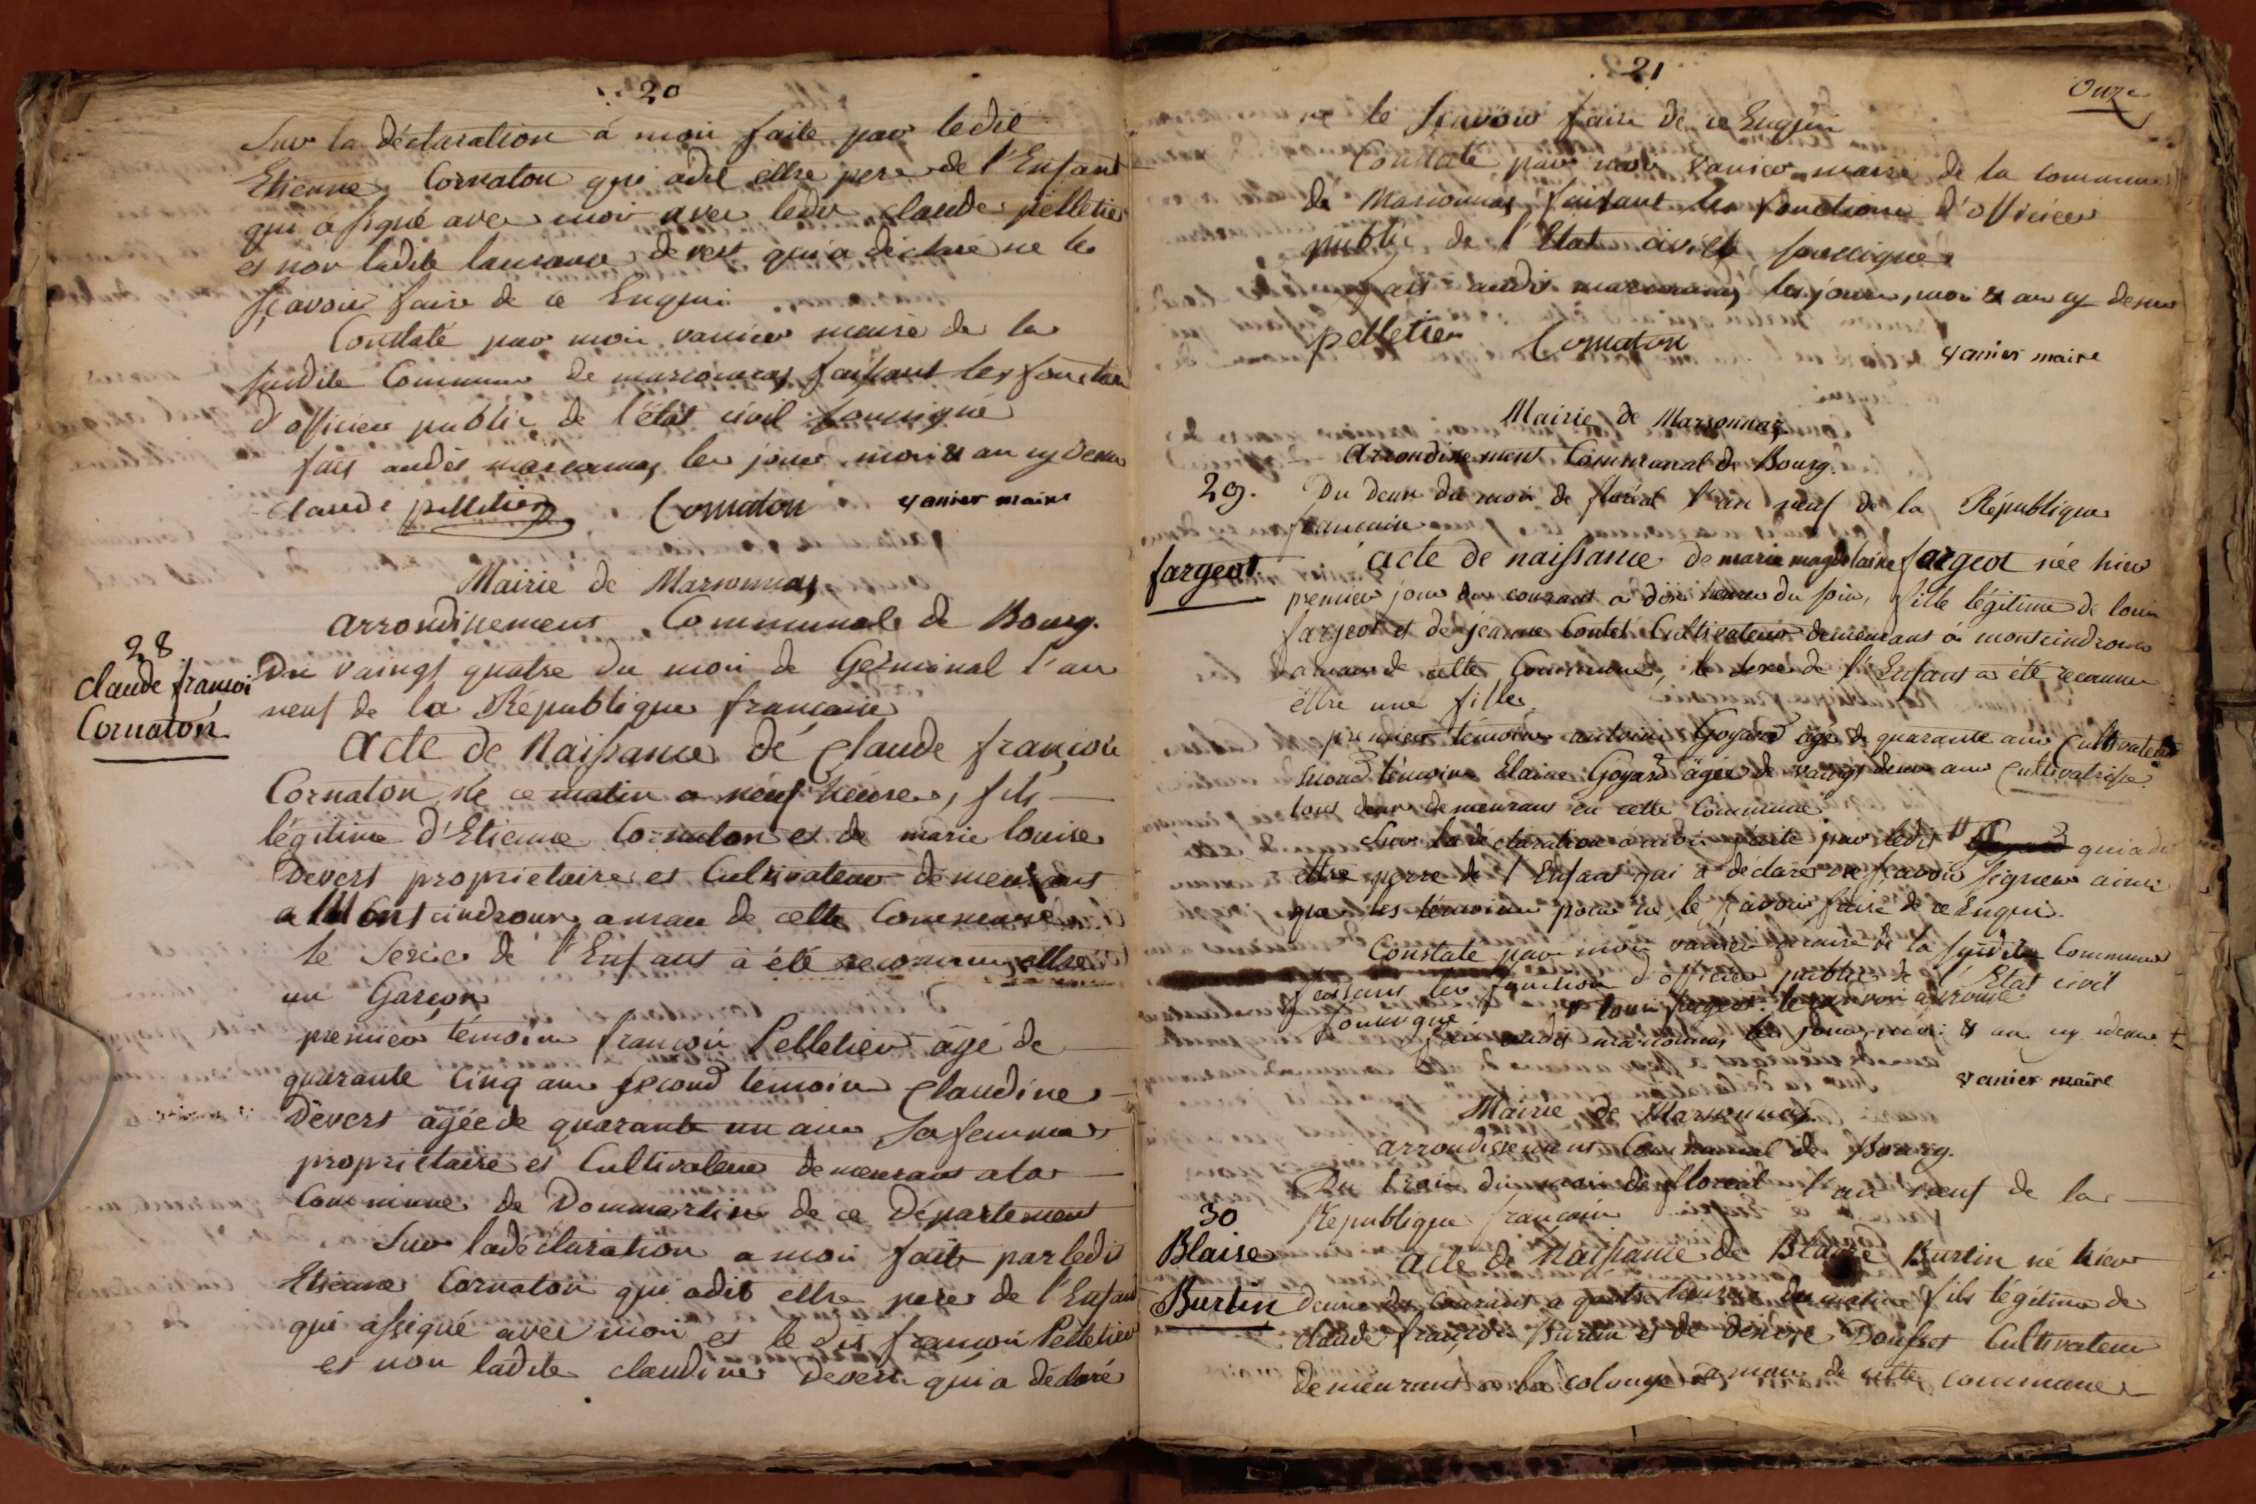 20
Sur la déclaration á moi faite par ledit
Etienne Cornaton qui adit ettre pere de l'Enfant
qui a signé avec moi avec ledit claude pelletier
et non ladite devert qui a déclaré ne le
sçavoir faire de ce Enquis
Constaté par moi vanier maire de la
susdite Commune de marsonnas faisant les fonction
d'officier public de l'état civil soussigné
fait audit marsonnas les jour moi & an cy dessu
claude pelletier Cornaton vanier maire
Mairie de Marsonnas
arrondissement Communal de Bourg.
28
claude françoi
Cornaton
Du vaingt quatre du moi de Germinal l'an
neuf de la République francaise
acte de Naissance de Claude françoi
Cornaton né ce matin a neuf heure, fils
légitime d'Etienne Cornaton et de marie louise
Devert propriétaire et Cultivateur demeurant
a Montcindroux amau de cette Commune
le Sexe de l'Enfant à été reconnu ettre
un Garçon
premier témoin françoi Pelletier âgé de
quarante cinq ans second témoin Claudine
Devert âgée de quarante un ans Sa femme
propriétaire et Cultivateur demeurant a la
Commune de Dommartin de ce Département
Sur la déclaration a moi faite par ledit
Etienne Cornaton qui adit ettre pere de l'Enfant
qui assigné avec moi et le dit françoi Pelletier
et non ladite claudine Devert qui a déclaré
21
Onze
ne le sçavoir faire de ce Enquis
Constaté par moi vanier maire de la commune
de Marsonnas faisant les fonctions d'officier
public de l'Etat civil soussigné
fait audit marsonnas les jour, moi & an cy dessu
pelletier Cornaton vanier maire
Mairie de Marsonnas
arrondissement Communal de Bourg.
29.
Du Deux du moi de floréal l'an neuf de la République
francaise
fargeot
acte de naissance de marie magdelaine fargeot née hier
premier jour du courant a dix heures du soir, fille légitime de loui
fargeot et de jeanne Contet Cultivateur demeurant á montcindroux
amau de cette Commune, le sexe de l'Enfant a été reconnu
ettre une fille
premier témoin antoine Goyard âgé de quarante ans Cultivateur
second témoin Elaine Goyard âgée de vaingt deux ans Cultivatrisse
tous deux demeurant en cette Commune
Sur la déclaration a moi faite par ledit qui a dit
ettre perre de l'Enfant qui a déclaré ne sçavoir signer ainsi
que les témoins pour ne le sçavoir faire de ce Enquis.
Constaté par moi vanier maire de la susdite Commune
faisant les fonction d'officier public de l'Etat civil
soussigné. loui fargeot. le renvoi approuvé
fait audit marsonnas les jour, moi & an cy dessu
vanier maire
Mairie de Marsonnas
arrondissement Communal de Bourg.
Du troi du moi de floreal l'an neuf de la
République francaise
30
Blaise
Burtin
acte de Naissance de Blaise Burtin né hier
deux du courant a quatre heures du matin fils légitime de
claude françoi Burtin et de denise Doufset Cultivateur
demeurant a la colonge amau de cette commune